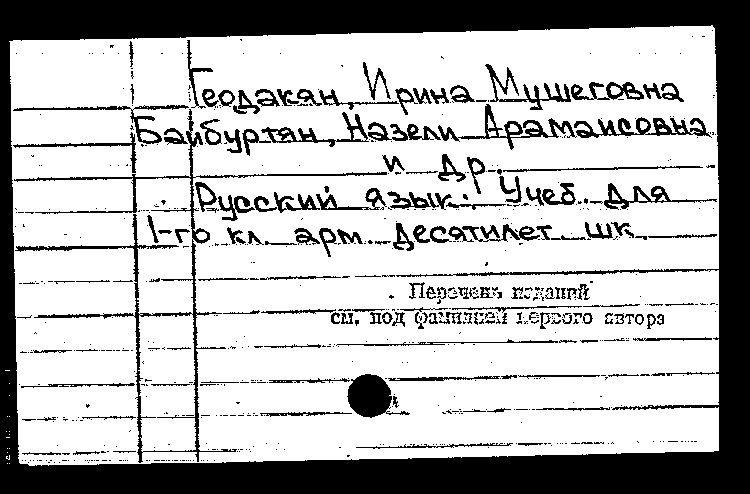 Геодакян, Ирина Мушеговна
Байбуртян, Назели Арамаисовна
и др.
Русский язык: Учеб. для
1-го кл. арм. десятилет. шк.
Перечень изданий
см. под фамилией первого автора